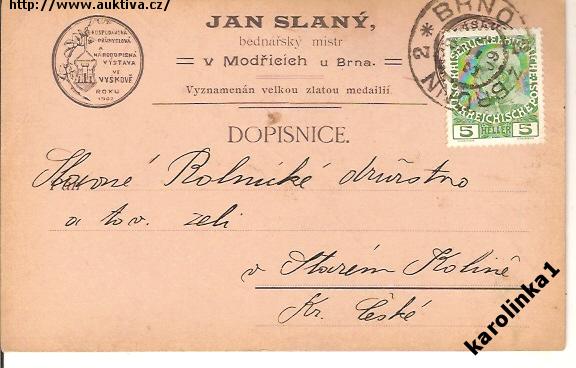 http://www.auktiva.cz/
HOSPODÁŘSKÁ
PRŮMYSLOVÁ
A
NÁRODOPISNÁ
VÝSTAVA
VE
VYŠKOVĚ
ROKU
1902
JAN SLANÝ,
bednářský mistr
v Modřicích u Brna.
Vyznamenán velkou zlatou medailií.
BRNO 2 * BRÜNN
5 HELLER 5
DOPISNICE.
Slavné Rolnické družstvo
a tov. zelí
v Starém Kolíně
Kr. České
karolinka1